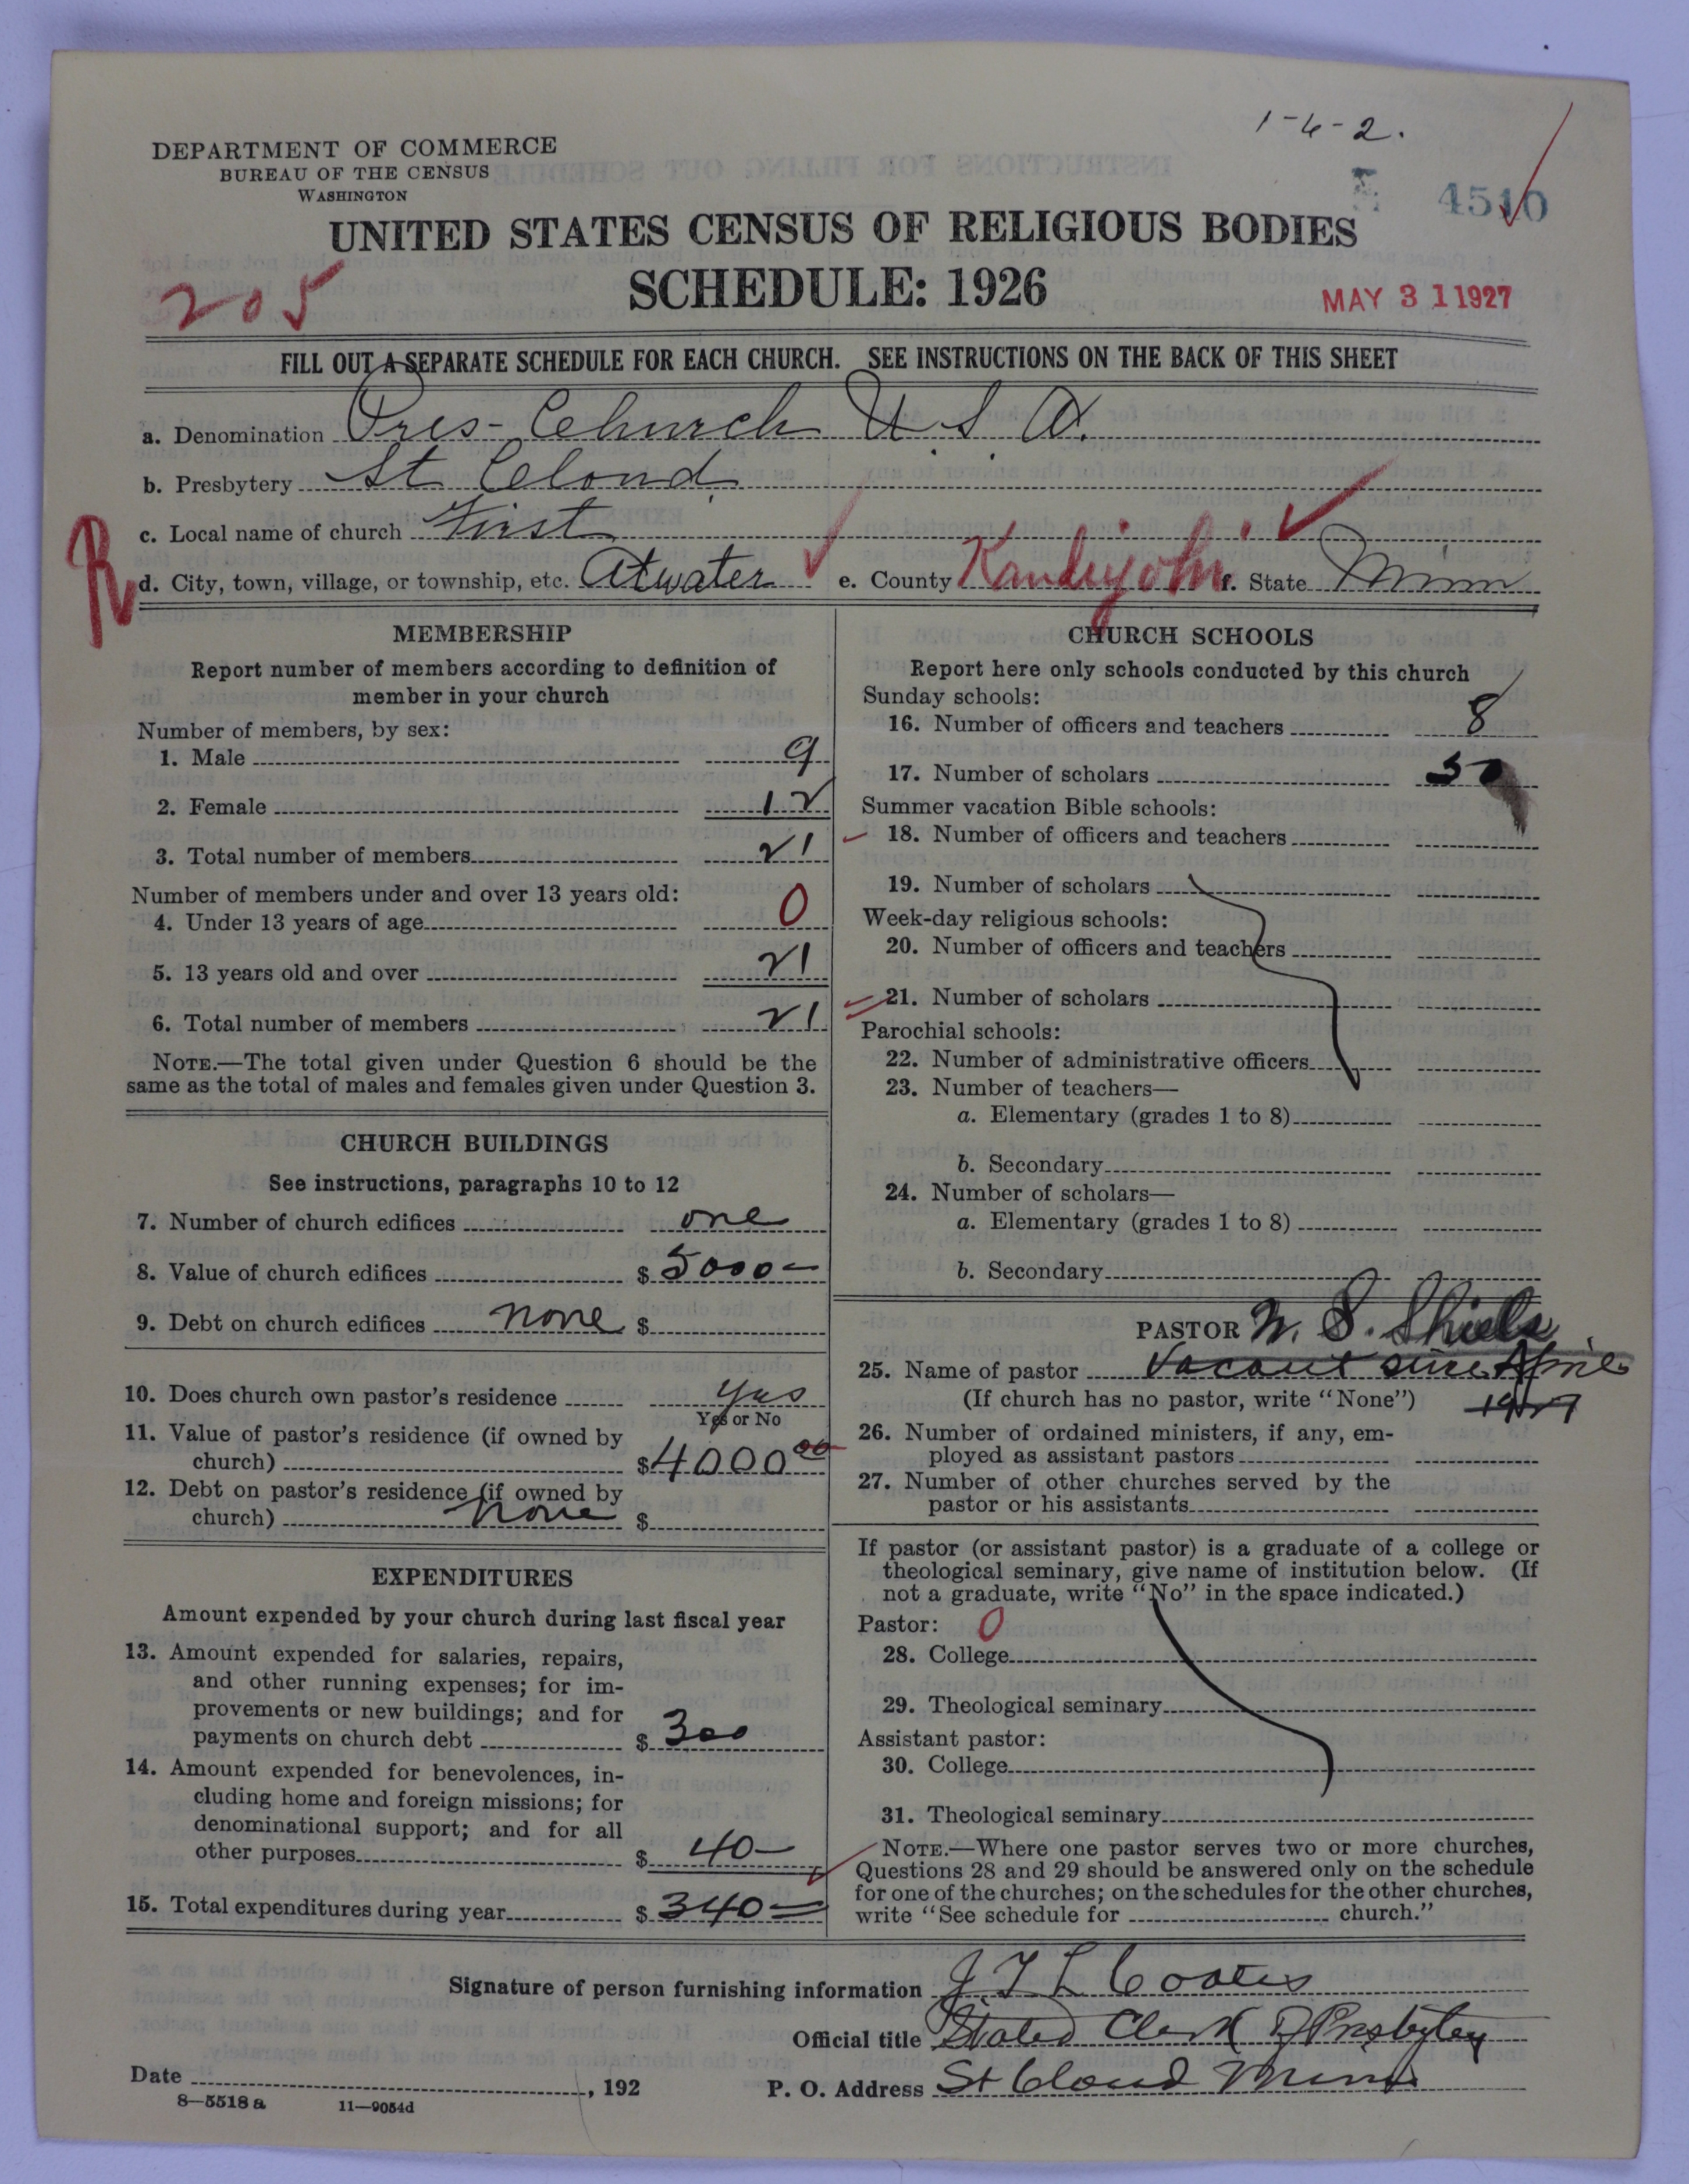 1-6-2.
DEPARTMENT OF COMMERCE
BUREAU OF THE CENSUS
WASHINGTON
4510
UNITED STATES CENSUS OF RELIGIOUS BODIES
SCHEDULE: 1926
205
MAY 31 1927
FILL OUT A SEPARATE SCHEDULE FOR EACH CHURCH. SEE INSTRUCTIONS ON THE BACK OF THIS SHEET
a. Denomination Pres- Church U S A.
b. Presbytery St Cloud
c. Local name of church First
R
d. City, town, village, or township, etc. Atwater e. County Kandiyohi f. State Minn
MEMBERSHIP
Report number of members according to definition of
member in your church
Number of members, by sex:
1. Male 9
2. Female 12
3. Total number of members 21
Number of members under and over 13 years old:
4. Under 13 years of age 0
5. 13 years old and over 21
6. Total number of members 21
NOTE.—The total given under Question 6 should be the
same as the total of males and females given under Question 3.
CHURCH BUILDINGS
See instructions, paragraphs 10 to 12
7. Number of church edifices one
8. Value of church edifices $ 5000-
9. Debt on church edifices none $
10. Does church own pastor's residence yes
Yes or No
11. Value of pastor's residence (if owned by
church) $ 4000 00
12. Debt on pastor's residence (if owned by
church) none $
EXPENDITURES
Amount expended by your church during last fiscal year
13. Amount expended for salaries, repairs,
and other running expenses; for im-
provements or new buildings; and for
payments on church debt $ 300
14. Amount expended for benevolences, in-
cluding home and foreign missions; for
denominational support; and for all
other purposes $ 40-
15. Total expenditures during year $ 340=
CHURCH SCHOOLS
Report here only schools conducted by this church
Sunday schools:
16. Number of officers and teachers 8
17. Number of scholars 50
Summer vacation Bible schools:
18. Number of officers and teachers
19. Number of scholars
Week-day religious schools:
20. Number of officers and teachers
21. Number of scholars
Parochial schools:
22. Number of administrative officers
23. Number of teachers—
a. Elementary (grades 1 to 8)
b. Secondary
24. Number of scholars—
a. Elementary (grades 1 to 8)
b. Secondary
PASTOR W. S. Shiels
25. Name of pastor Vacant since April
(If church has no pastor, write "None") 1927
26. Number of ordained ministers, if any, em-
ployed as assistant pastors
27. Number of other churches served by the
pastor or his assistants
If pastor (or assistant pastor) is a graduate of a college or
theological seminary, give name of institution below. (If
not a graduate, write "No" in the space indicated.)
Pastor: 0
28. College
29. Theological seminary
Assistant pastor:
30. College
31. Theological seminary
NOTE.—Where one pastor serves two or more churches,
Questions 28 and 29 should be answered only on the schedule
for one of the churches; on the schedules for the other churches,
write "See schedule for church."
Signature of person furnishing information J T L Coates
Official title Stated Clerk of Presbytery
Date , 192 P. O. Address St Cloud Minn
8—5518 a 11—9054d